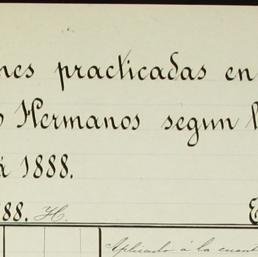 nes practicadas en
s Hermanos segun l
á 1888.
88. H. E
Aplicado á la cuent